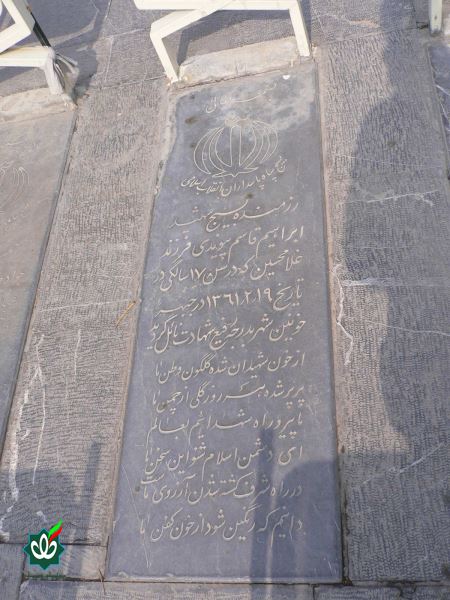 بسمه تعالی
بسیج سپاه پاسداران انقلاب اسلامی
رزمنده بسیج شهید
ابراهیم قاسم پوییدی فرزند
غلامحسین که در سن ۱۷ سالگی در
تاریخ ۱۳۶۱،۲،۱۹ در جبهه
خونین شهر بدرجه رفیع شهادت نائل گردید
از خون شهیدان شده گلگون وطن ما
پرپر شده هر روز گلی از چمن ما
ما پیرو راه شهدائیم بعالم
ای دشمن اسلام شنو این سخن ما
در راه شرف کشته شدن آرزوی ماست
دانیم که رنگین شود از خون کفن ما